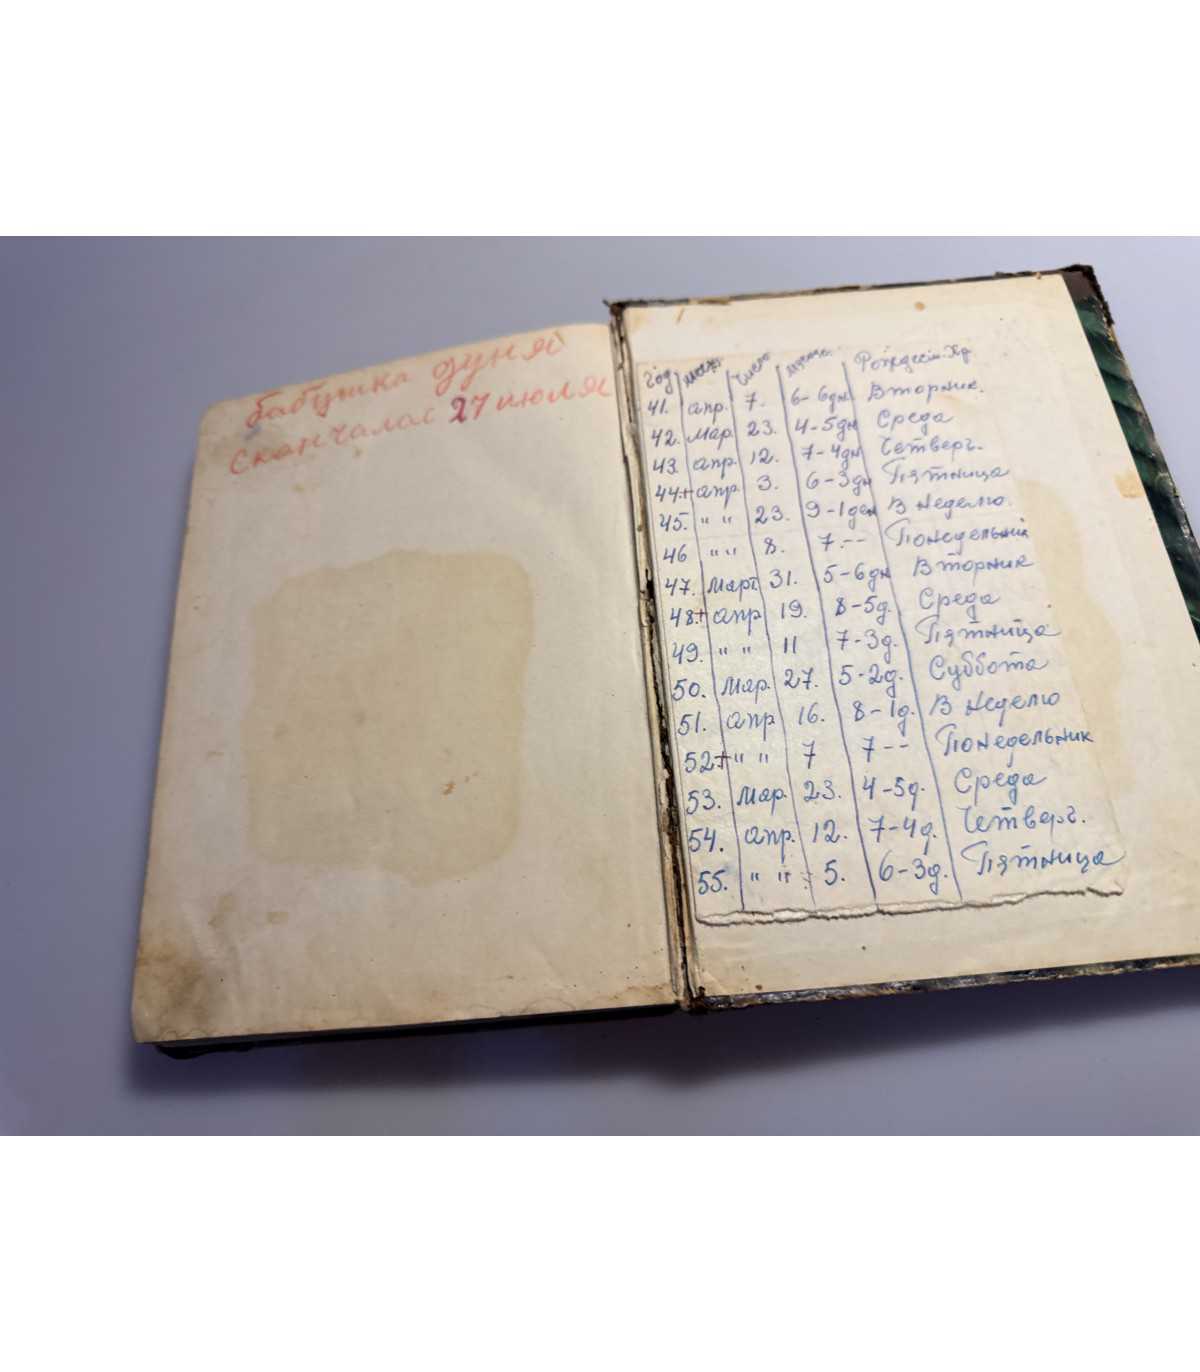 бабушка дуня
сканчалас 27 июля
год месяц число мясое. Рождеств. Хр.
41. апр. 7. 6-6дн Вторник.
42. мар. 23. 4-5дн Среда
43. апр. 12. 7-4дн Четверг.
44.+ апр. 3. 6-3дн Пятница
45. " " 23. 9-1ден В неделю.
46 " " 8. 7.-- Понедельник
47. март 31. 5-6дн Вторник
48.+ апр 19. 8-5д. Среда
49. " " 11 7-3д. Пятница
50. мар. 27. 5-2д. Суббота
51. апр 16. 8-1д. В неделю
52+ " " 7 7-- Понедельник
53. мар. 23. 4-5д. Среда
54. апр. 12. 7-4д. Четверг.
55. " " 5. 6-3д. Пятница